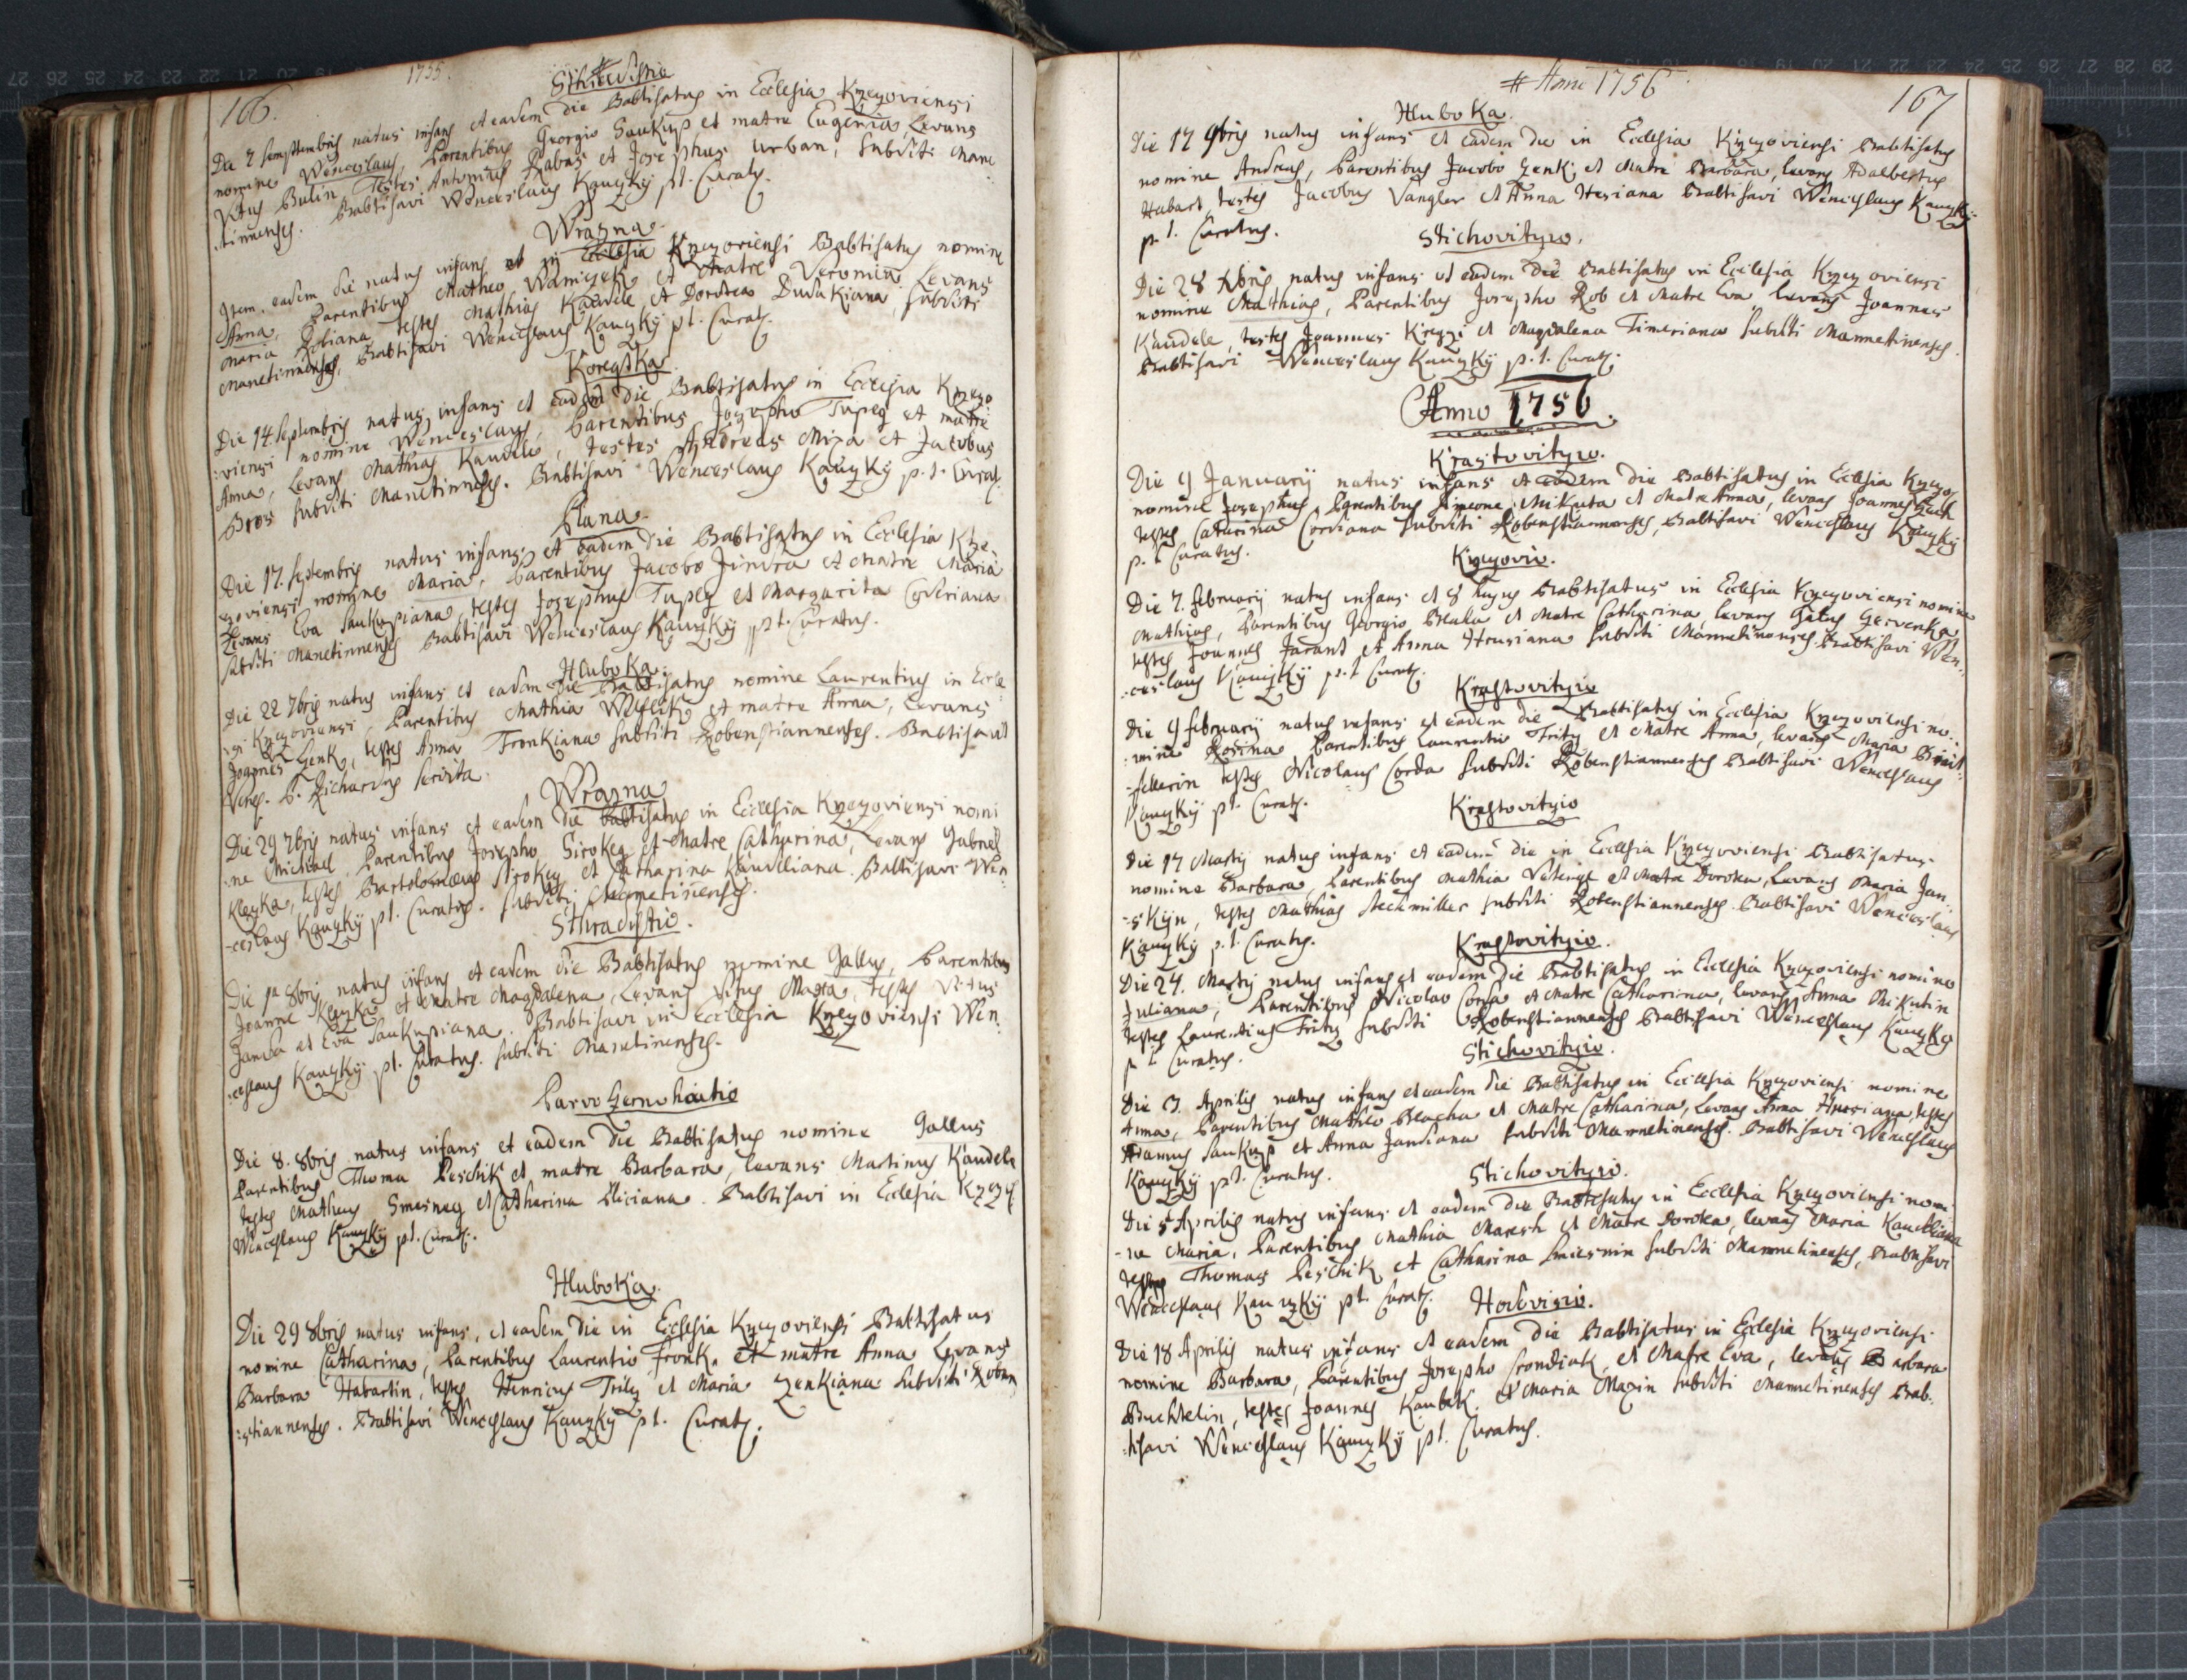 166.
1755.
Sthradistio
Die 7 Semptembris natus infans et eadem die Babtisatus in Ecclesia Krzczoviensi
nomine Wenceslaus, Parentibus Georgio Saukup et matre Eugenia, Levans
Vitus Bulin Testes Antonius Rabas et Josephus Urban, subditi Mane
:tinnenses. Babtisavi Wenceslaus Kauzky pt. Curatus.
Wrazna.
Item eadem die natus infans et in Ecclesia Krzczoviensi Babtisatus nomine
Anna, Parentibus Matheo Wamiczek et Matre Veronica Levans
Maria Robiana testes Mathias Kaudele et Dorothea Dudakiana, subditi
Manetinnenses, Babtisavi Wenceslaus Kauzky pt. Curatus.
Koregtka.
Die 14 Septembris natus infans et eadem die Babtisatus in Ecclesia Krzczo
:viensi nomine Wenceslaus, Parentibus Josepho Tupeg et matre
Anna, Levans Mathias Kaudele, testes Andreas Miza et Jacobus
Bros subditi Manetinnenses. Babtisavi Wenceslaus Kauzky p. t. Curat.
Plana.
Die 17. Septembris natus infans et eadem die Babtisatus in Ecclesia Krze:
czoviensi nomine Maria, Parentibus Jacobo Jindra et Matre Maria
Levans Eva Saukupiana, testes Josephus Tupeg et Margarita
subditi Manetinnenses Babtisavi Wenceslaus Kauzky pt. Curatus.
Hluboka.
Die 22 7bris natus infans et eadem die Babtisatus nomine Laurentius in Eccle
:sia Krzczoviensi, Parentibus Mathia et matre Anna, Levans
Joannes Zenk, testes Anna Fronkiana subditi Robenstiannenses. Babtisavit
P. Richardus Servita.
Wrazna
Die 29 7bris natus infans et eadem die babtisatus in Ecclesia Krzczoviensi nomi
:ne Michael, Parentibus Josepho Sirokey et Matre Catharina, Levans Gabriel
Kleyka, testes Bartolomaeus Sirokey et Catharina Kaudeliana. Babtisavi Wen
:ceslaus Kauzky pt. Curatus. subditi Manetinenses.
Sthradistio.
Die 1ma 8bris natus infans et eadem die Babtisatus nomine Gallus, Parentibus
Joanne Kleyka et Matre Magdalena, Levans Vitus testes Vitus
Janda et Eva Saukupiana. Babtisavi in Ecclesia Krzczoviensi Wen:
:ceslaus Kauzky pt. Curatus. subditi Manetinenses.
Parvo Zernohautio
Die 8. 8bris natus infans et eadem die Babtisatus nomine Gallus
Parentibus Thoma Peschik et matre Barbara, levans Martinus Kaudele
testes Matheus Smesney et Catharina Pliciana. Babtisavi in Ecclesia Krzcz
Wenceslaus Kauzky pt. Curatus.
Hluboka.
Die 29 8bris natus infans, et eadem die in Ecclesia Krzczoviensi Babtisatus
nomine Catharina, Parentibus Laurentio Fronk, et matre Anna Levans
Barbara Habartin, testes Henricus et Maria Zenkiana subditi Roben
:stiannenses. Babtisavi Wenceslaus Kauzky pt. Curatus.
# Anno 1756
167
Hluboka.
Die 17 9bris natus infans et eadem die in Ecclesia Krzczoviensi Babtisatus
nomine Andreas, Parentibus Jacobo Zenk et Matre Barbara, levans Adalbertus
Habart testes Jacobus Vangler et Anna Babtisavi Wenceslaus Kauzky
p. t. Curatus.
Stichovitzio.
Die 28 Xbris natus infans et eadem die Babtisatus in Ecclesia Krzczoviensi
nomine Mathias, Parentibus Josepho Rob et Matre Eva levans Joannes
Kaudele, testes Joannes Kregzi et Magdalena Timeriana subditi Mannetinenses.
Babtisavi Wenceslaus Kauzky p. t. Curatus.
Anno 1756.
Krastovitzio.
Die 9 Januarij natus infans et eadem die Babtisatus in Ecclesia Krzczov
nomine Josephus, Parentibus Simeone Mikuta et Matre Anna, levans Joannes
testes Catharina Cordiana subditi Robenstiannenses, Babtisavi Wenceslaus Kauzky
p. t. Curatus.
Krzczovio.
Die 7. Februarij natus infans et 8 hujus Babtisatus in Ecclesia Krzczoviensi nomine
Mathias, Parentibus Georgio et Matre Catharina, levans Galus Czervenka
testes Joannes Jarant et Anna Hrusiana subditi Mannetinenses. Babtisavi Wen:
:ceslaus Kauzky p. t. Curatus.
Krastovitzio
Die 9 Februarij natus infans et eadem die Babtisatus in Ecclesia Krzczoviensi no:
:mine Rosina Parentibus Laurentio Fritz et Matre Anna, levans Maria
testes Nicolaus Corda subditi Robenstiannenses Babtisavi Wenceslaus
Kauzky pt. Curatus.
Krastovitzio
Die 17 Martij natus infans et eadem die in Ecclesia Krzczoviensi Babtisatus
nomine Barbara, Parentibus Mathia et Matre Dorotea, Levans Maria Jan:
-skijn, testes Mathias Steckmiller subditi Robenstiannenses. Babtisavi Wenceslaus
Kauzky p. t. Curatus.
Krastovitzio.
Die 24. Martij natus infans et eadem die Babtisatus in Ecclesia Krzczoviensi nomine
Juliana, Parentibus Nicolao Corda et Matre Catharina, levans Anna Mikutin
testes Laurentius Fritz subditi Robenstiannenses Babtisavi Wenceslaus Kauzky
p t. Curatus.
Stichovitzio.
Die 3. Aprilis natus infans et eadem die Babtisatus in Ecclesia Krzczoviensi nomine
Anna, Parentibus Matheo Blacha et Matre Catharina, levans Anna testes
Adamus Saukup et Anna Jandiana subditi Mannetinenses. Babtisavi Wenceslaus
Kauzky pt. Curatus.
Stichovitzio.
Die 5 Aprilis natus infans et eadem die Babtisatus in Ecclesia Krzczoviensi nomi
-ne Maria, Parentibus Mathia Maresh et Matre Dorotea, levans Maria Kaudeliana
testes Thomas Peschik et Catharina Smiesnin subditi Mannetinenses, Babtisavi
Wenceslaus Kauzky pt. Curatus.
Hodovisio.
Die 18 Aprilis natus infans et eadem die Babtisatus in Ecclesia Krzczoviensi
nomine Barbara, Parentibus Josepho et Matre Eva, levans Barbara
Buchtelin, testes Joannes Kaubek et Maria Mazin subditi Mannetinenses Bab:
:tisavi Wenceslaus Kauzky pt. Curatus.